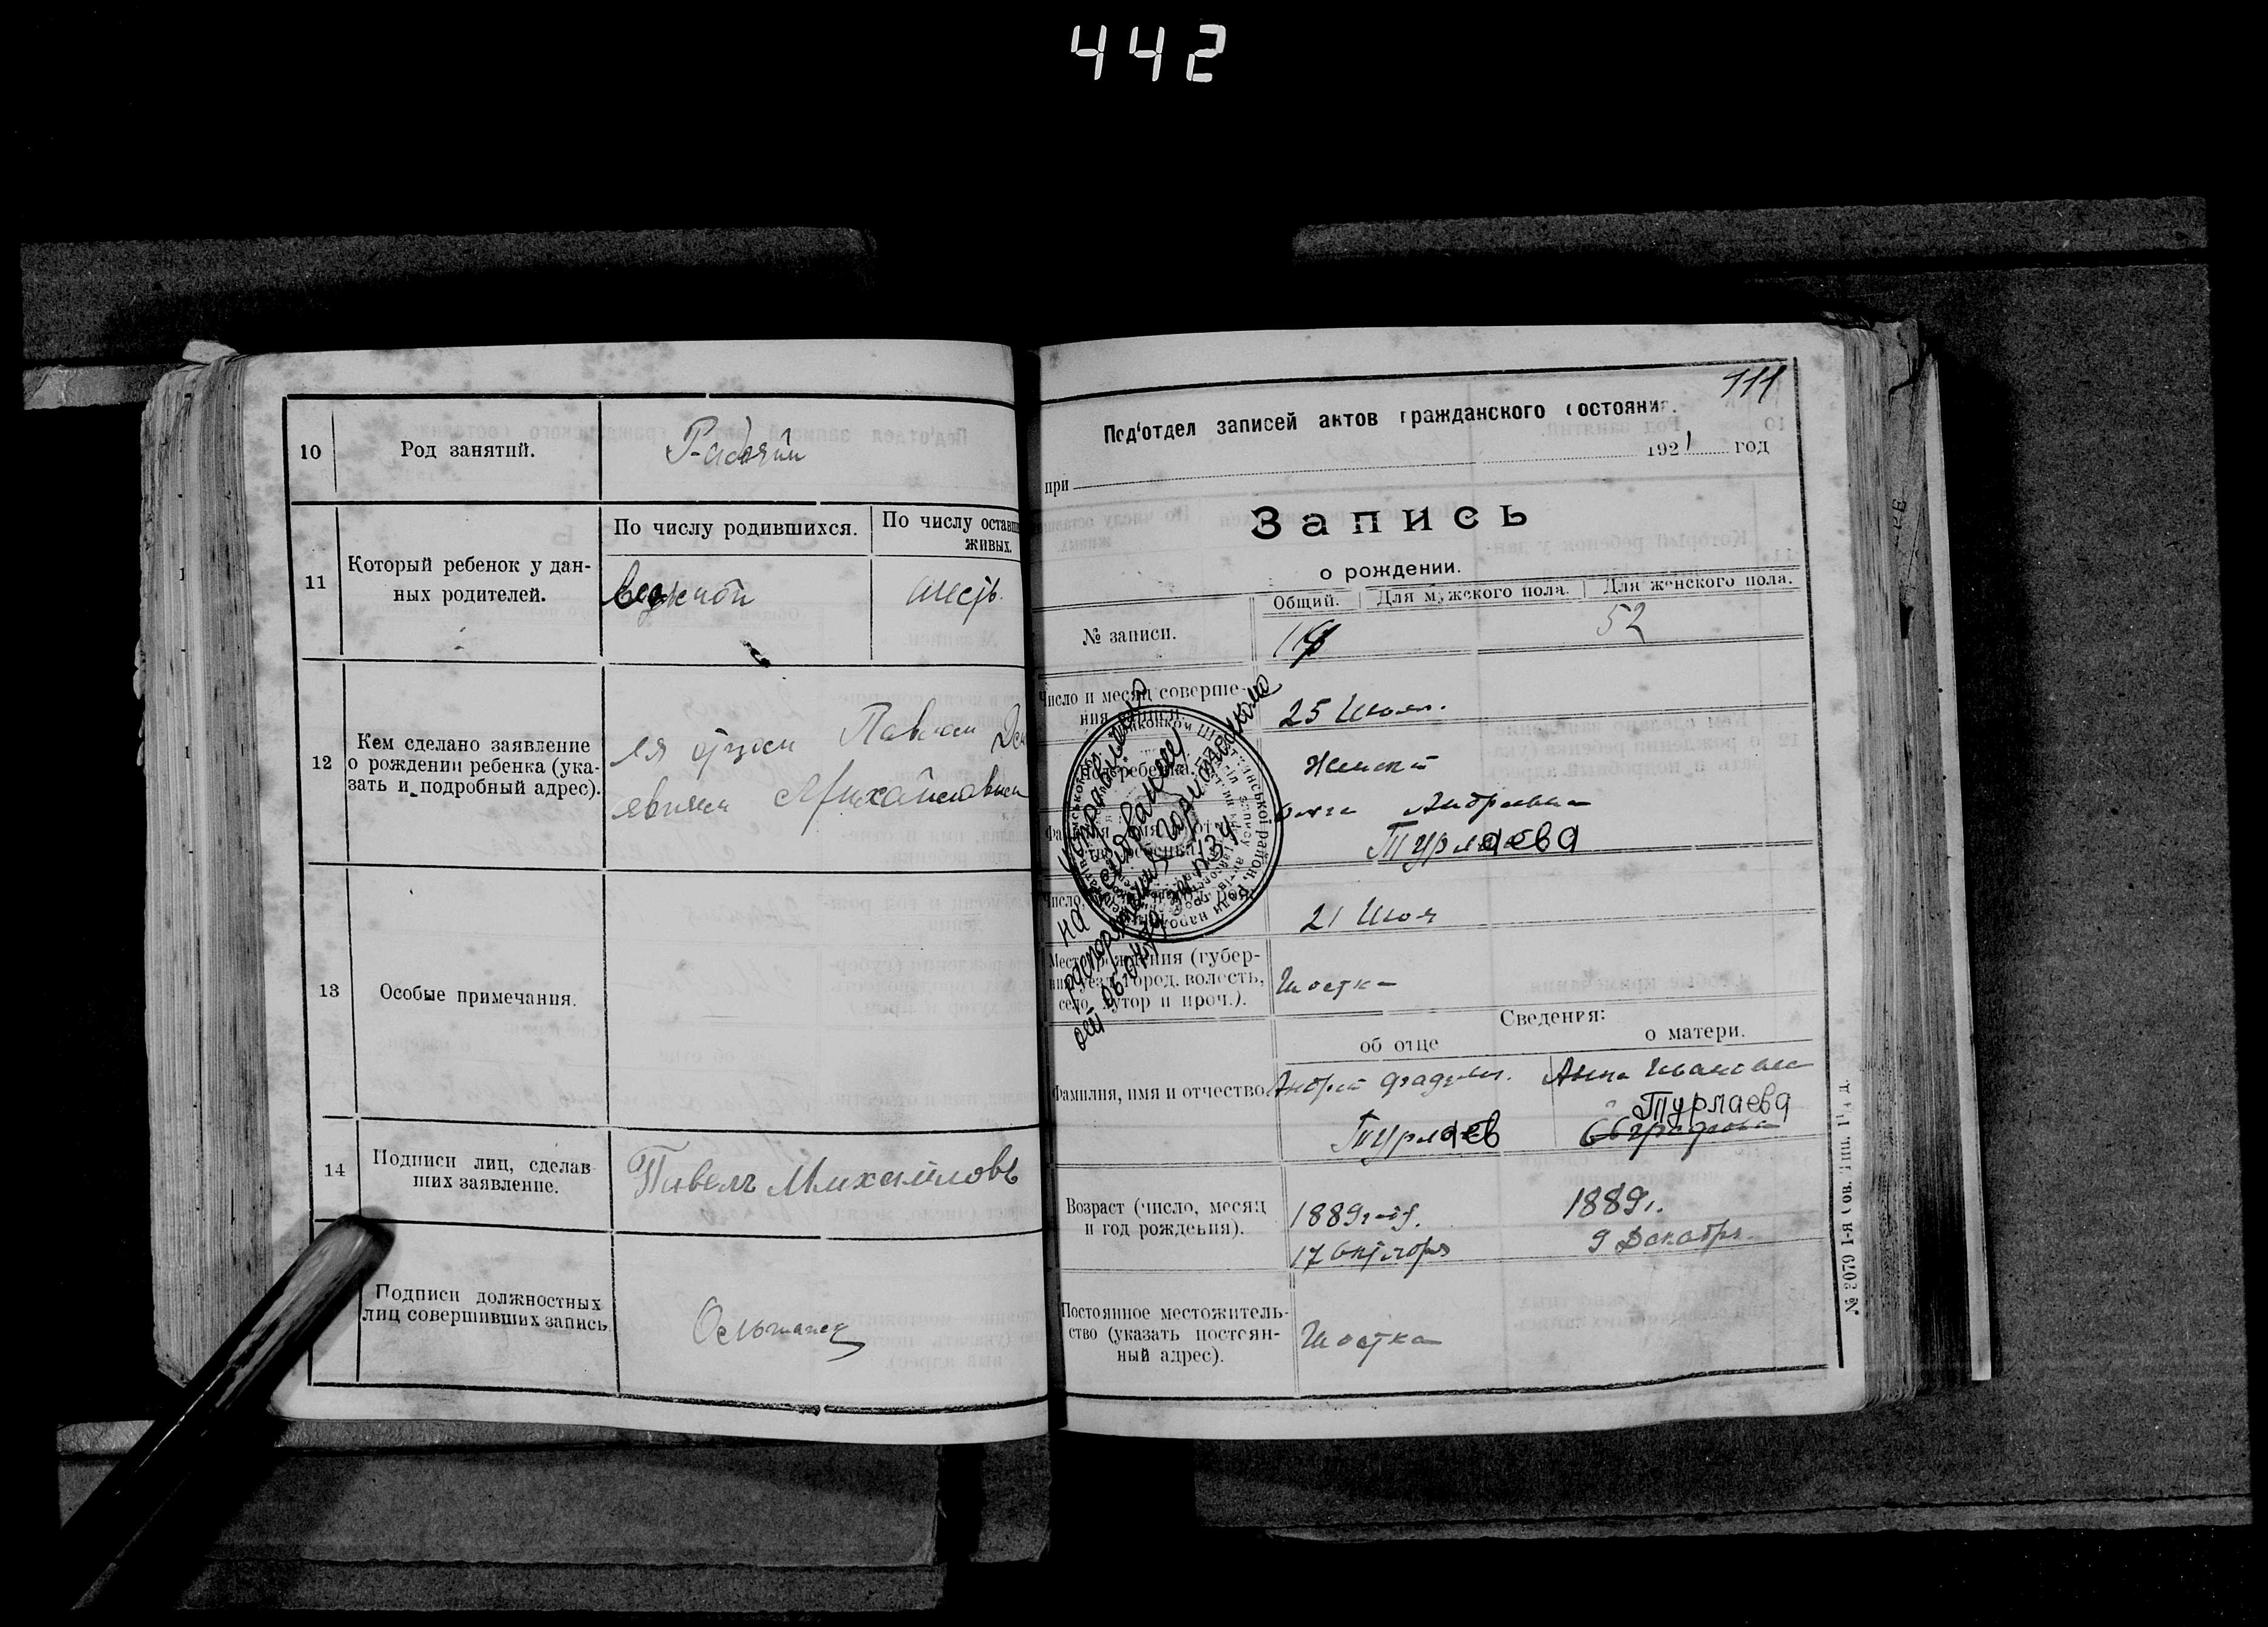 442
10
Род занятий.
Рабочий
11
Который ребенок у дан-
ных родителей.
По числу родившихся.
По числу оставш
живых.
шесть.
12
Кем сделано заявление
о рождении ребенка (ука-
зать и подробный адрес).
отцом Павлом
Михайловым
13
Особые примечания.
14
Подписи лиц, сделав-
ших заявление.
Павелъ Михайловъ
Подписи должностных
лиц совершивших запись
111
Под'отдел записей актов гражданского состояния.
при
1921 год
Запись
о рождении.
№ записи.
Общий.
Для мужского пола.
Для женского пола.
52
Число и месяц соверше-
ния записи.
25 Июля.
Пол ребенка.
Женский
Ольга Андреевна
Турлаева
21 Июля
Место рождения (губер-
ния, уезд, город, волость,
село, хутор и проч.).
Шостка
Сведения:
об отце
о матери.
Фамилия, имя и отчество
Андрей
Турлаев
Анна Ивановна
Турлаева
Возраст (число, месяц
и год рождения).
1889
17 Октября
1889г.
9 Декабря
Постоянное местожитель-
ство (указать постоян-
ный адрес).
Шостка
исправлено
на основании
№ 2079 1-я Сов. Тип.